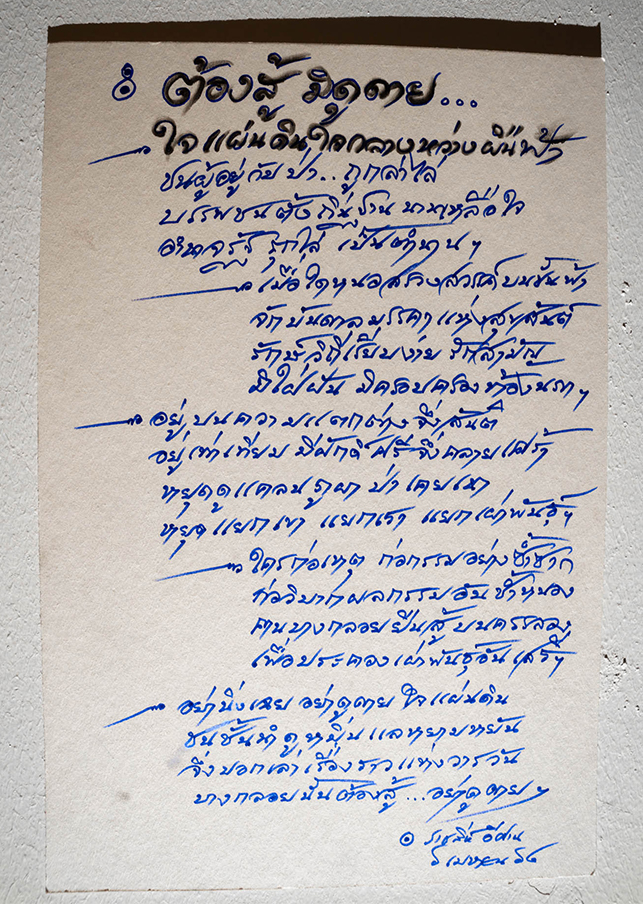 ๏ ต้องสู้ มิดูดาย...
ใจแผ่นดินใจกลางหว่างผืนฟ้า
ชนผู้อยู่กับป่า..ถูกล่าไล่
บรรพชนตั้งถิ่นฐาน นานเหลือใจ
อำนาจรัฐ รุกไล่ เป็นตำนานฯ
เมื่อใดหนอสรวงสวรรค์บนชั้นฟ้า
จักบันดาลมรรคาแห่งสุขสันต์
รักษ์วิถีเรียบง่าย รักสามัญ
มิใฝ่ฝัน มิครอบครองท้องนภาฯ
อยู่บนความแตกต่างจึ่งสันติ
อยู่เท่าเทียม มีศักดิ์ศรี จึ่งคลายเศร้า
หยุดดูแคลนภูผาป่าเคยเนา
หยุดแยกเขา แยกเรา แยกเผ่าพันธุ์ฯ
ใครก่อเหตุ ก่อกรรมอย่างซ้ำซาก
ก่อวิบากผลกรรมอันช้ำหนอง
คนบางกลอยยืนสู้บนครรลอง
เพื่อประคองเผ่าพันธุ์อันเสรีฯ
อย่านิ่งเฉย อย่าดูดาย ใจแผ่นดิน
ชนชั้นนำดูหมิ่นแลหยามหยัน
จึ่งบอกเล่าเรื่องราวแห่งวารวัน
บางกลอยนั้นต้องสู้...อย่าดูดายฯ
๏ อีสาน
เมษายน ๖๔